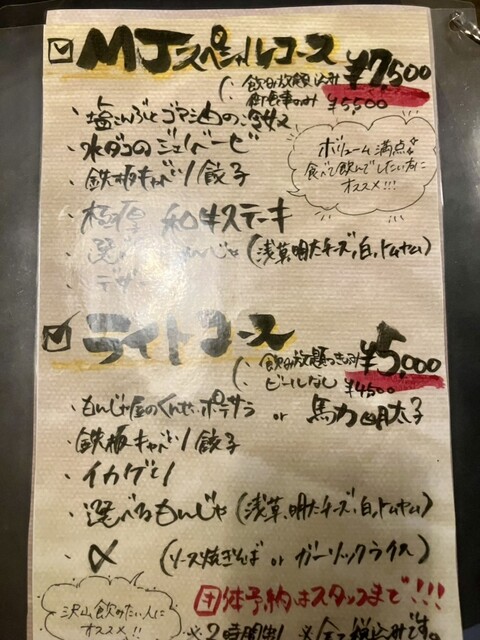 MJスペシャルコース ¥7,500
飲み放題込み
御食事のみ ¥5,500
・水ダコのジュレポーゼ
・鉄板キャベツ餃子
・極厚 和牛ステーキ
・選べるもんじゃ (浅草,明太チーズ,白,トムヤム)
・デザ
ボリューム満点
食べて飲んでしたい方に
オススメ!!!
ライトコース ¥5,000
飲み放題つき
ビールなし ¥4500
・もんじゃ屋のくんせいポテサラ or 馬力明太子
・鉄板キャベツ餃子
・イカゲソ
・選べるもんじゃ (浅草,明太チーズ,白,トムヤム)
・〆 (ソース焼きそば or ガーリックライス)
沢山飲みたい人に
オススメ!!
団体予約はスタッフまで!!!
※2時間制 ※全て税込みです